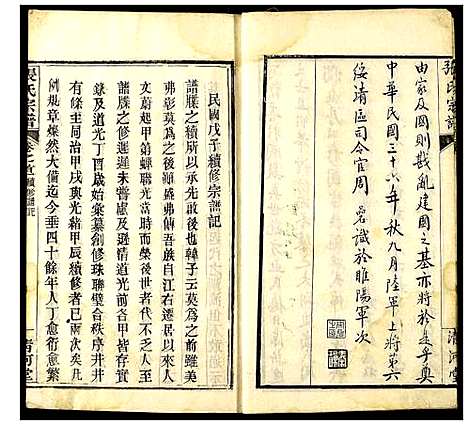 張氏宗譜
由家及國則戡亂建國之基亦將於是乎奠
中華民國三十六年秋九月陸軍上將第六
綏靖區司令官周碞識於睢陽軍次
清河堂
民國戊子續修宗譜記
譜牒之修所以
敢後也韓子云莫爲之前雖美
弗彰莫爲之後雖盛弗傳吾族自江右遷居以來
文蔚起甲第蟬聯光當時而榮後世者代不乏人而
譜牒之修遲遲未嘗慮及迨道光前各甲皆存實
道光丁酉歲始彙纂創修珠聯璧合秩序井井
有條至同治甲戌與光緒甲辰續修者已
例規章燦然大備迄今垂四十餘年人丁愈衍愈繁
張氏宗譜
卷之首
清河堂